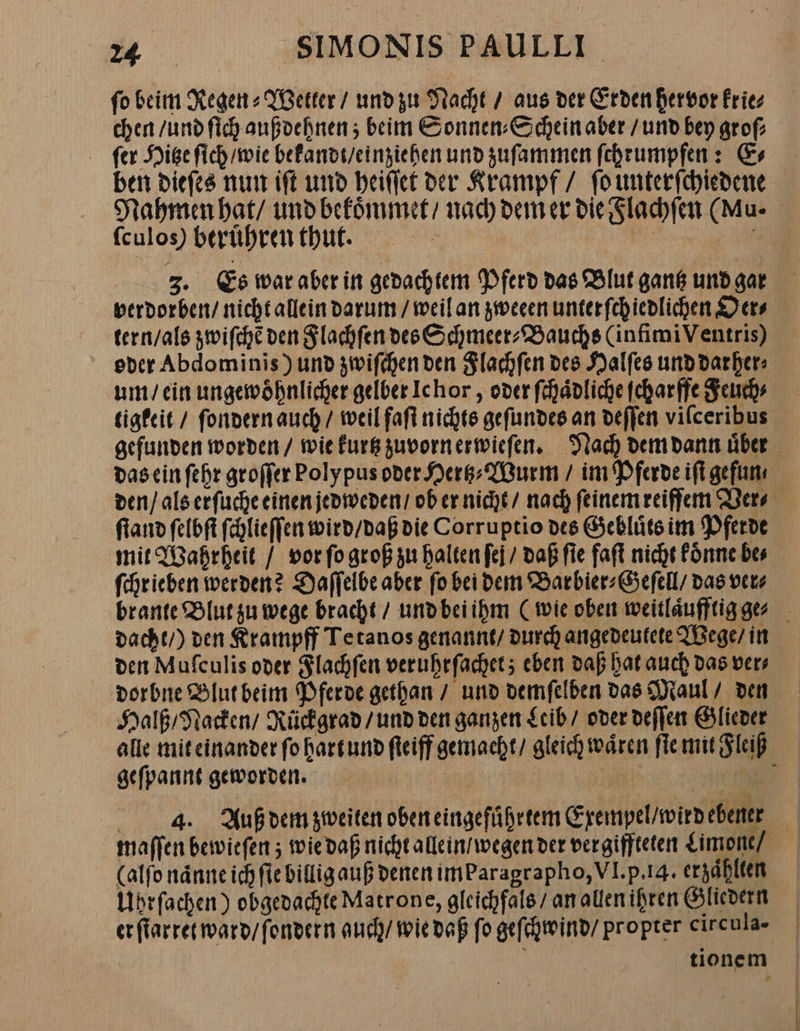 24 SIMONIS PAULLI
ſo beim Regen⸗Wetter / und zu Nacht / aus der Erden hervor krie⸗
chen / und ſich außdehnen; beim Sonnen⸗Schein aber / und bey groſ⸗
ſer Hitze ſich / wie bekandt / einziehen und zuſammen ſchrumpfen: E⸗
ben dieſes nun iſt und heiſſet der Krampf / ſo unterſchiedene
Nahmen hat / und bekoͤmmet / nach dem er die Flachſen (Mu-
ſculos) beruͤhren thut.
3. Es war aber in gedachtem Pferd das Blut gantz und gar
verdorben / nicht allein darum / weil an zweeen unterſchiedlichen Oer⸗
tern / als zwiſchẽ den Flachſen des Schmeer⸗Bauchs (infimi Ventris)
oder Abdominis) und zwiſchen den Flachſen des Halſes und dar her⸗
um / ein ungewoͤhnlicher gelber Ichor, oder ſchaͤdliche ſcharffe Feuch⸗
tigkeit / ſondern auch / weil faſt nichts geſundes an deſſen viſceribus
gefunden worden / wie kurtz zuvorn erwieſen. Nach dem dann uͤber
das ein ſehr groſſer Polypus oder Hertz⸗Wurm / im Pferde iſt gefun⸗
den / als erſuche einen jedweden / ob er nicht / nach ſeinem reiffem Ver⸗
ſtand ſelbſt ſchlieſſen wird / daß die Corruptio des Gebluͤts im Pferde
mit Wahrheit / vor ſo groß zu halten ſej / daß ſie faſt nicht koͤnne be⸗
ſchrieben werden? Daſſelbe aber ſo bei dem Barbier⸗Geſell / das ver⸗
brante Blut zu wege bracht / und bei ihm ( wie oben weitlaͤufftig ge⸗
dacht /) den Krampff Tetanos genannt / durch angedeutete Wege / in
den Muſculis oder Flachſen veruhrſachet; eben daß hat auch das ver⸗
dorbne Blut beim Pferde gethan / und demſelben das Maul / den
Halß / Nacken / Ruͤckgrad / und den ganzen Leib / oder deſſen Glieder
alle mit einander ſo hart und ſteiff gemacht / gleich waͤren ſie mit Fleiß
geſpannt geworden.
4. Auß dem zweiten oben eingefuͤhrtem Exempel / wird ebener
maſſen bewieſen; wie daß nicht allein / wegen der vergiffteten Limone /
(alſo naͤnne ich ſie billig auß denen im Paragrapho, VI. p. 14. erzaͤhlten
Uhrſachen) obgedachte Matrone, gleichfals / an allen ihren Gliedern
erſtarret ward / ſondern auch / wie daß ſo geſchwind / propter circula-
tionem